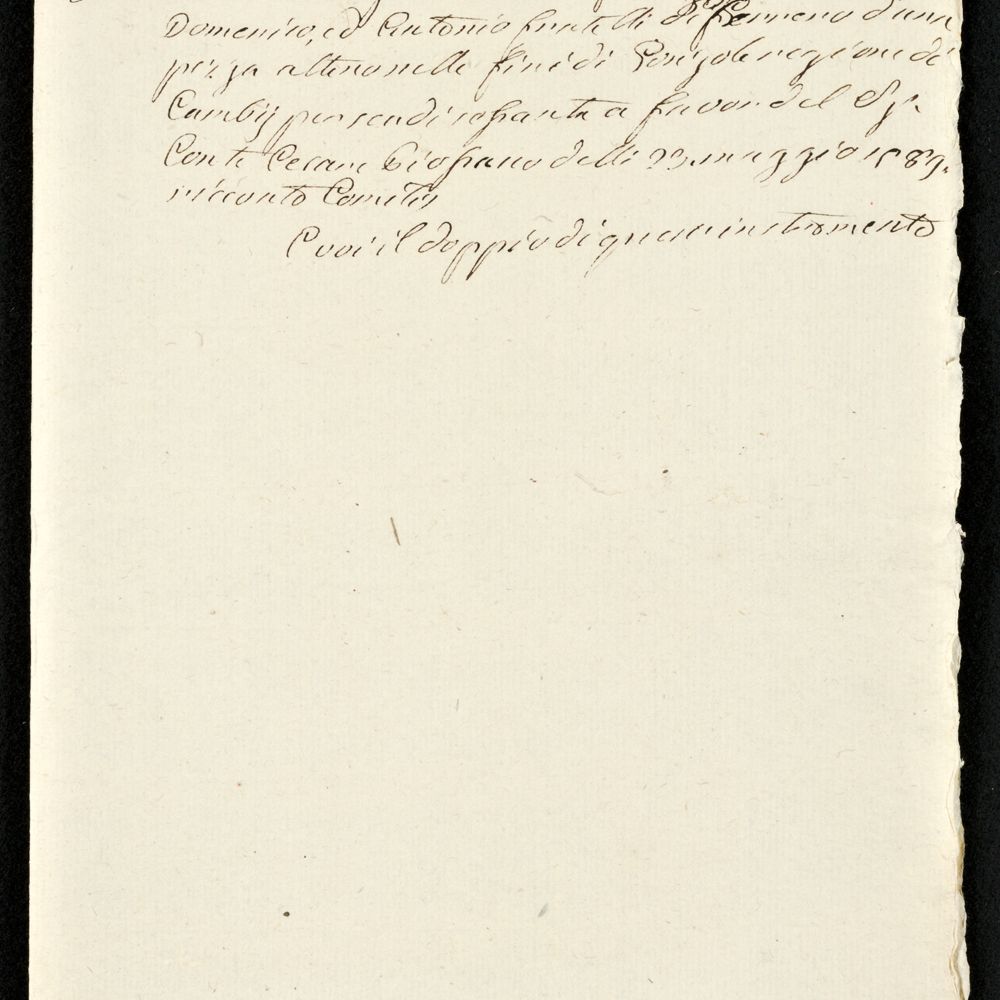 Domenico, ed Antonio fratelli di Ferrero d'una
pezza alteno nelle fini di Ponzole regione di
Cambij per scudi sessanta a favor del Sr.
Conte Cesare Biesano delli 23. maggio 1589.
ricconto Comitis
E voi il doppio di questi instromento